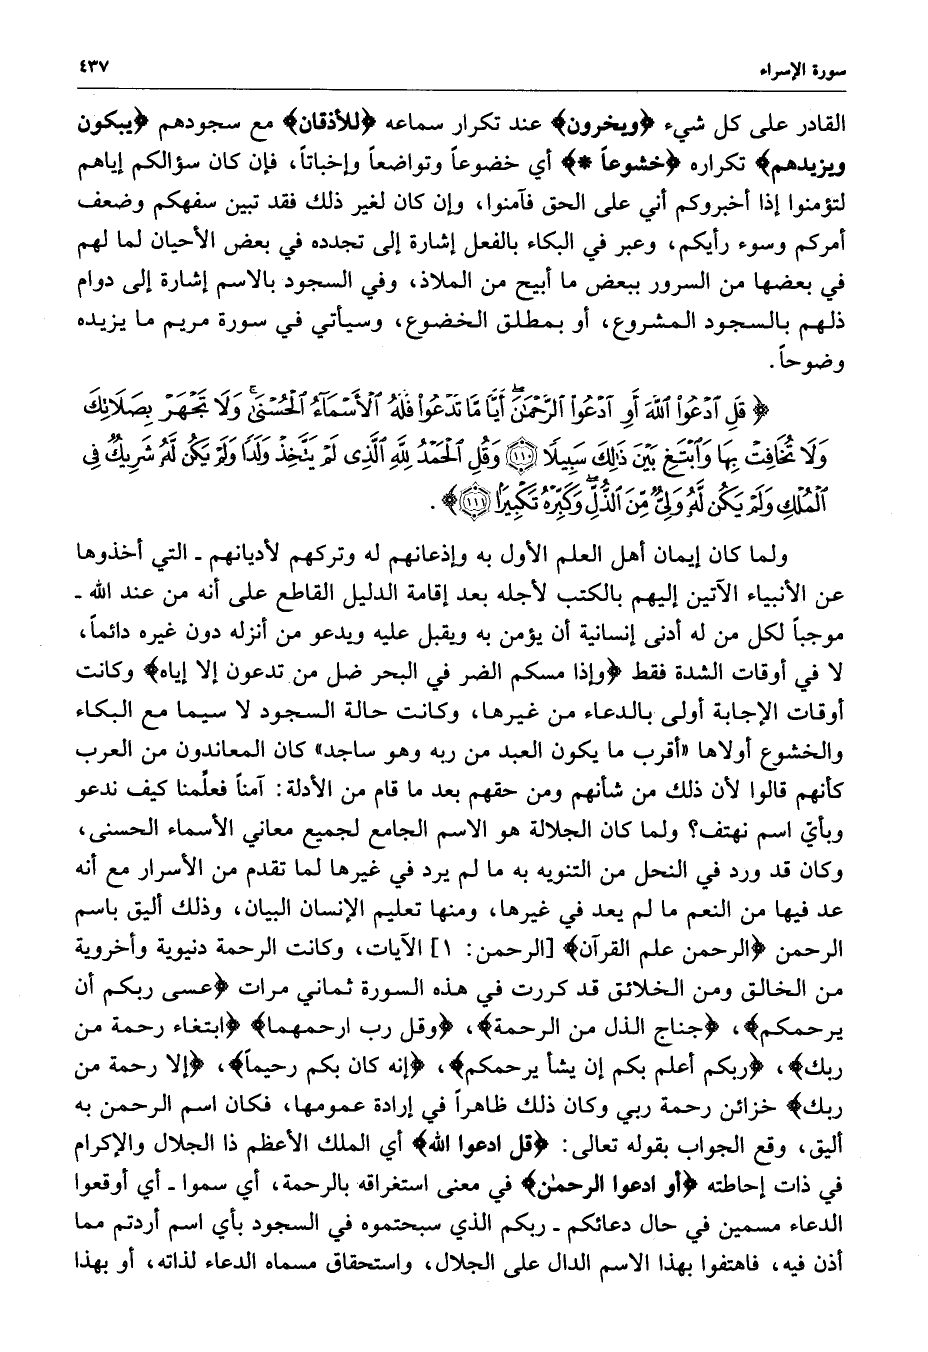 سورة الإسراء
٤٣٧
القادر على كل شيء ﴿ويخرون﴾ عند تكرار سماعه ﴿للأذقان﴾ مع سجودهم ﴿يبكون
ويزيدهم﴾ تكراره ﴿خشوعاً *﴾ أي خضوعاً وتواضعاً وإخباتاً، فإن كان سؤالكم إياهم
لتؤمنوا إذا أخبروكم أني على الحق فآمنوا، وإن كان لغير ذلك فقد تبين سفهكم وضعف
أمركم وسوء رأيكم، وعبر في البكاء بالفعل إشارة إلى تجدده في بعض الأحيان لما لهم
في بعضها من السرور ببعض ما أبيح من الملاذ، وفي السجود بالاسم إشارة إلى دوام
ذلهم بالسجود المشروع، أو بمطلق الخضوع، وسيأتي في سورة مريم ما يزيده
وضوحاً.
﴿ قُلِ ٱدْعُوا۟ ٱللَّهَ أَوِ ٱدْعُوا۟ ٱلرَّحْمَٰنَ ۖ أَيًّا مَّا تَدْعُوا۟ فَلَهُ ٱلْأَسْمَآءُ ٱلْحُسْنَىٰ ۚ وَلَا تَجْهَرْ بِصَلَاتِكَ
وَلَا تُخَافِتْ بِهَا وَٱبْتَغِ بَيْنَ ذَٰلِكَ سَبِيلًا ۝١١٠ وَقُلِ ٱلْحَمْدُ لِلَّهِ ٱلَّذِى لَمْ يَتَّخِذْ وَلَدًا وَلَمْ يَكُن لَّهُۥ شَرِيكٌ فِى
ٱلْمُلْكِ وَلَمْ يَكُن لَّهُۥ وَلِىٌّ مِّنَ ٱلذُّلِّ ۖ وَكَبِّرْهُ تَكْبِيرًا ۝١١١﴾.
ولما كان إيمان أهل العلم الأول به وإذعانهم له وتركهم لأديانهم ـ التي أخذوها
عن الأنبياء الآتين إليهم بالكتب لأجله بعد إقامة الدليل القاطع على أنه من عند الله ـ
موجباً لكل من له أدنى إنسانية أن يؤمن به ويقبل عليه ويدعو من أنزله دون غيره دائماً،
لا في أوقات الشدة فقط ﴿وإذا مسكم الضر في البحر ضل من تدعون إلا إياه﴾ وكانت
أوقات الإجابة أولى بالدعاء من غيرها، وكانت حالة السجود لا سيما مع البكاء
والخشوع أولاها «أقرب ما يكون العبد من ربه وهو ساجد» كان المعاندون من العرب
كأنهم قالوا لأن ذلك من شأنهم ومن حقهم بعد ما قام من الأدلة: آمناً فعلِّمنا كيف ندعو
وبأيّ اسم نهتف؟ ولما كان الجلالة هو الاسم الجامع لجميع معاني الأسماء الحسنى،
وكان قد ورد في النحل من التنويه به ما لم يرد في غيرها لما تقدم من الأسرار مع أنه
عد فيها من النعم ما لم يعد في غيرها، ومنها تعليم الإنسان البيان، وذلك أليق باسم
الرحمن ﴿الرحمن علم القرآن﴾ [الرحمن: ١] الآيات، وكانت الرحمة دنيوية وأخروية
من الخالق ومن الخلائق قد كررت في هذه السورة ثماني مرات ﴿عسى ربكم أن
يرحمكم﴾، ﴿جناح الذل من الرحمة﴾، ﴿وقل رب ارحمهما﴾ ﴿ابتغاء رحمة من
ربك﴾، ﴿ربكم أعلم بكم إن يشأ يرحمكم﴾، ﴿إنه كان بكم رحيماً﴾، ﴿إلا رحمة من
ربك﴾ خزائن رحمة ربي وكان ذلك ظاهراً في إرادة عمومها، فكان اسم الرحمن به
أليق، وقع الجواب بقوله تعالى: ﴿قل ادعوا الله﴾ أي الملك الأعظم ذا الجلال والإكرام
في ذات إحاطته ﴿أو ادعوا الرحمٰن﴾ في معنى استغراقه بالرحمة، أي سموا ـ أي أوقعوا
الدعاء مسمين في حال دعائكم ـ ربكم الذي سبحتموه في السجود بأي اسم أردتم مما
أذن فيه، فاهتفوا بهذا الاسم الدال على الجلال، واستحقاق مسماه الدعاء لذاته، أو بهذا